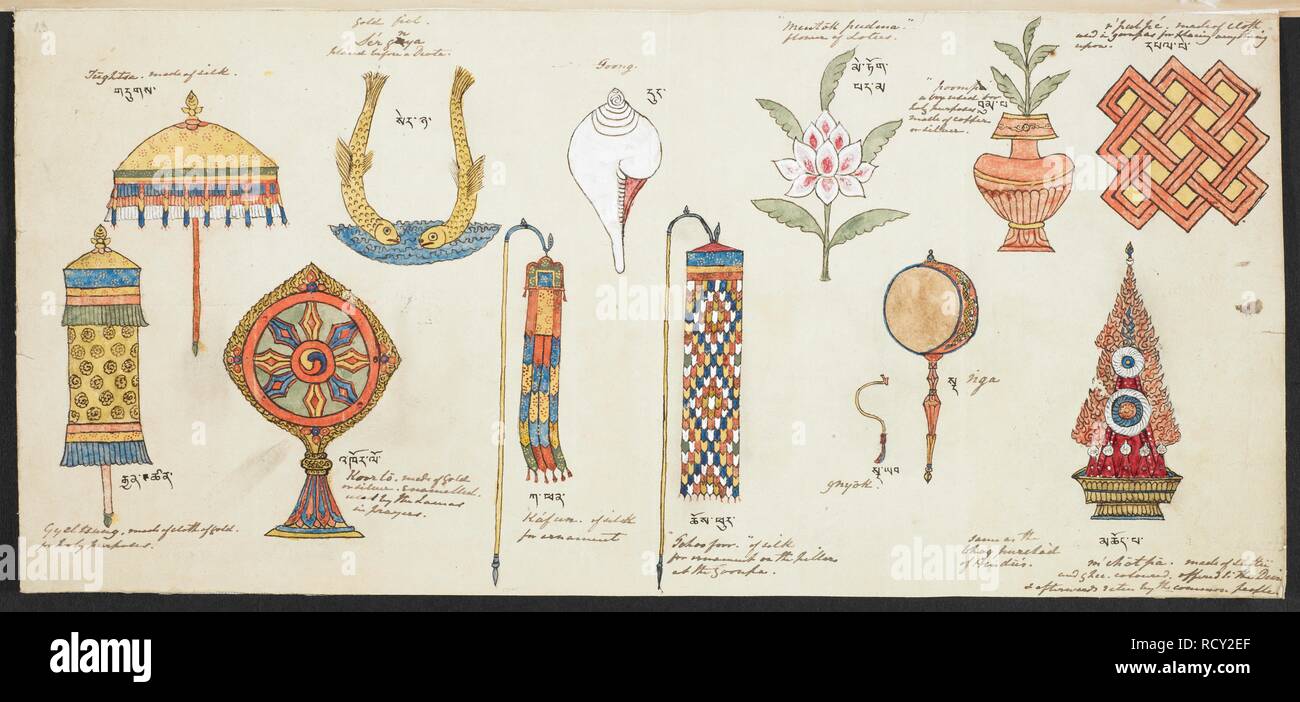 Tughtsa. made of silk.
གདུགས་
Gold fish.
Sér gnya
placed before a Deota.
སེར་ཉ་
Toong.
དུར་
"Mentók pudma."
flower of Lotus.
མེ་ཏོག་
པར་མ
"poompa
used for
holy purposes
made of copper
or silver.
བུམ་པ
made of cloth
used in goompas for placing anything
upon.
དཔལ་པེ་
རྒྱན་ཚན་
Gyeltsung. made of cloth of gold.
for holy purposes.
འཁོར་ལོ་
Koorlō. made of gold
or silver. enamelled.
used by the Lamas
in prayers.
ཀ་ཕན་
Káfun. of silk
for ornament
ཆོས་ཕུར་
"Tchos foor." of silk
for ornament on the pillars
at the Goompa.
རྔ་
n̄ga
རྔ་ཡབ
gnyōk.
same as the
of Hindus.
མཆོད་པ་
m'chōtpa. made of
and ghee. coloured. offered to the Deity
& afterwards eaten by the common people.
alamy
RCY2EF
www.alamy.com